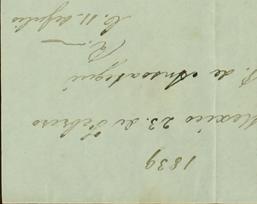 1839
Mexico 23. de Febrero
P. de Ansoategui
R.
C. 11. de Julio